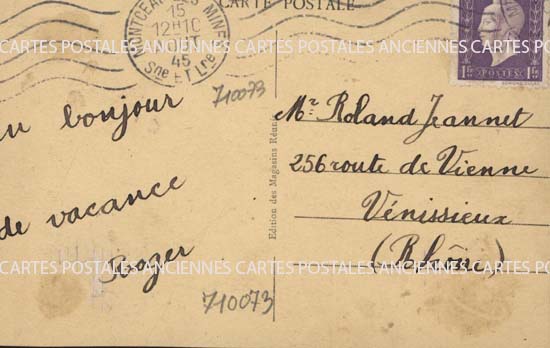 CARTE POSTALE
MONTCEAU MINE
15
12H1C
45
Sne ET Lre
1F POSTES 1F
710073
un bonjour
de vacance
Roger
Edition des Magasins Réun
Mr. Roland Jeannet
256 route de Vienne
Vénissieux
(Rhône)
CARTES POSTALES ANCIENNES CARTES POSTALES ANCIENNES CARTES
CARTES POSTALES ANCIENNES CARTES POSTALES ANCIENNES CARTES
710073